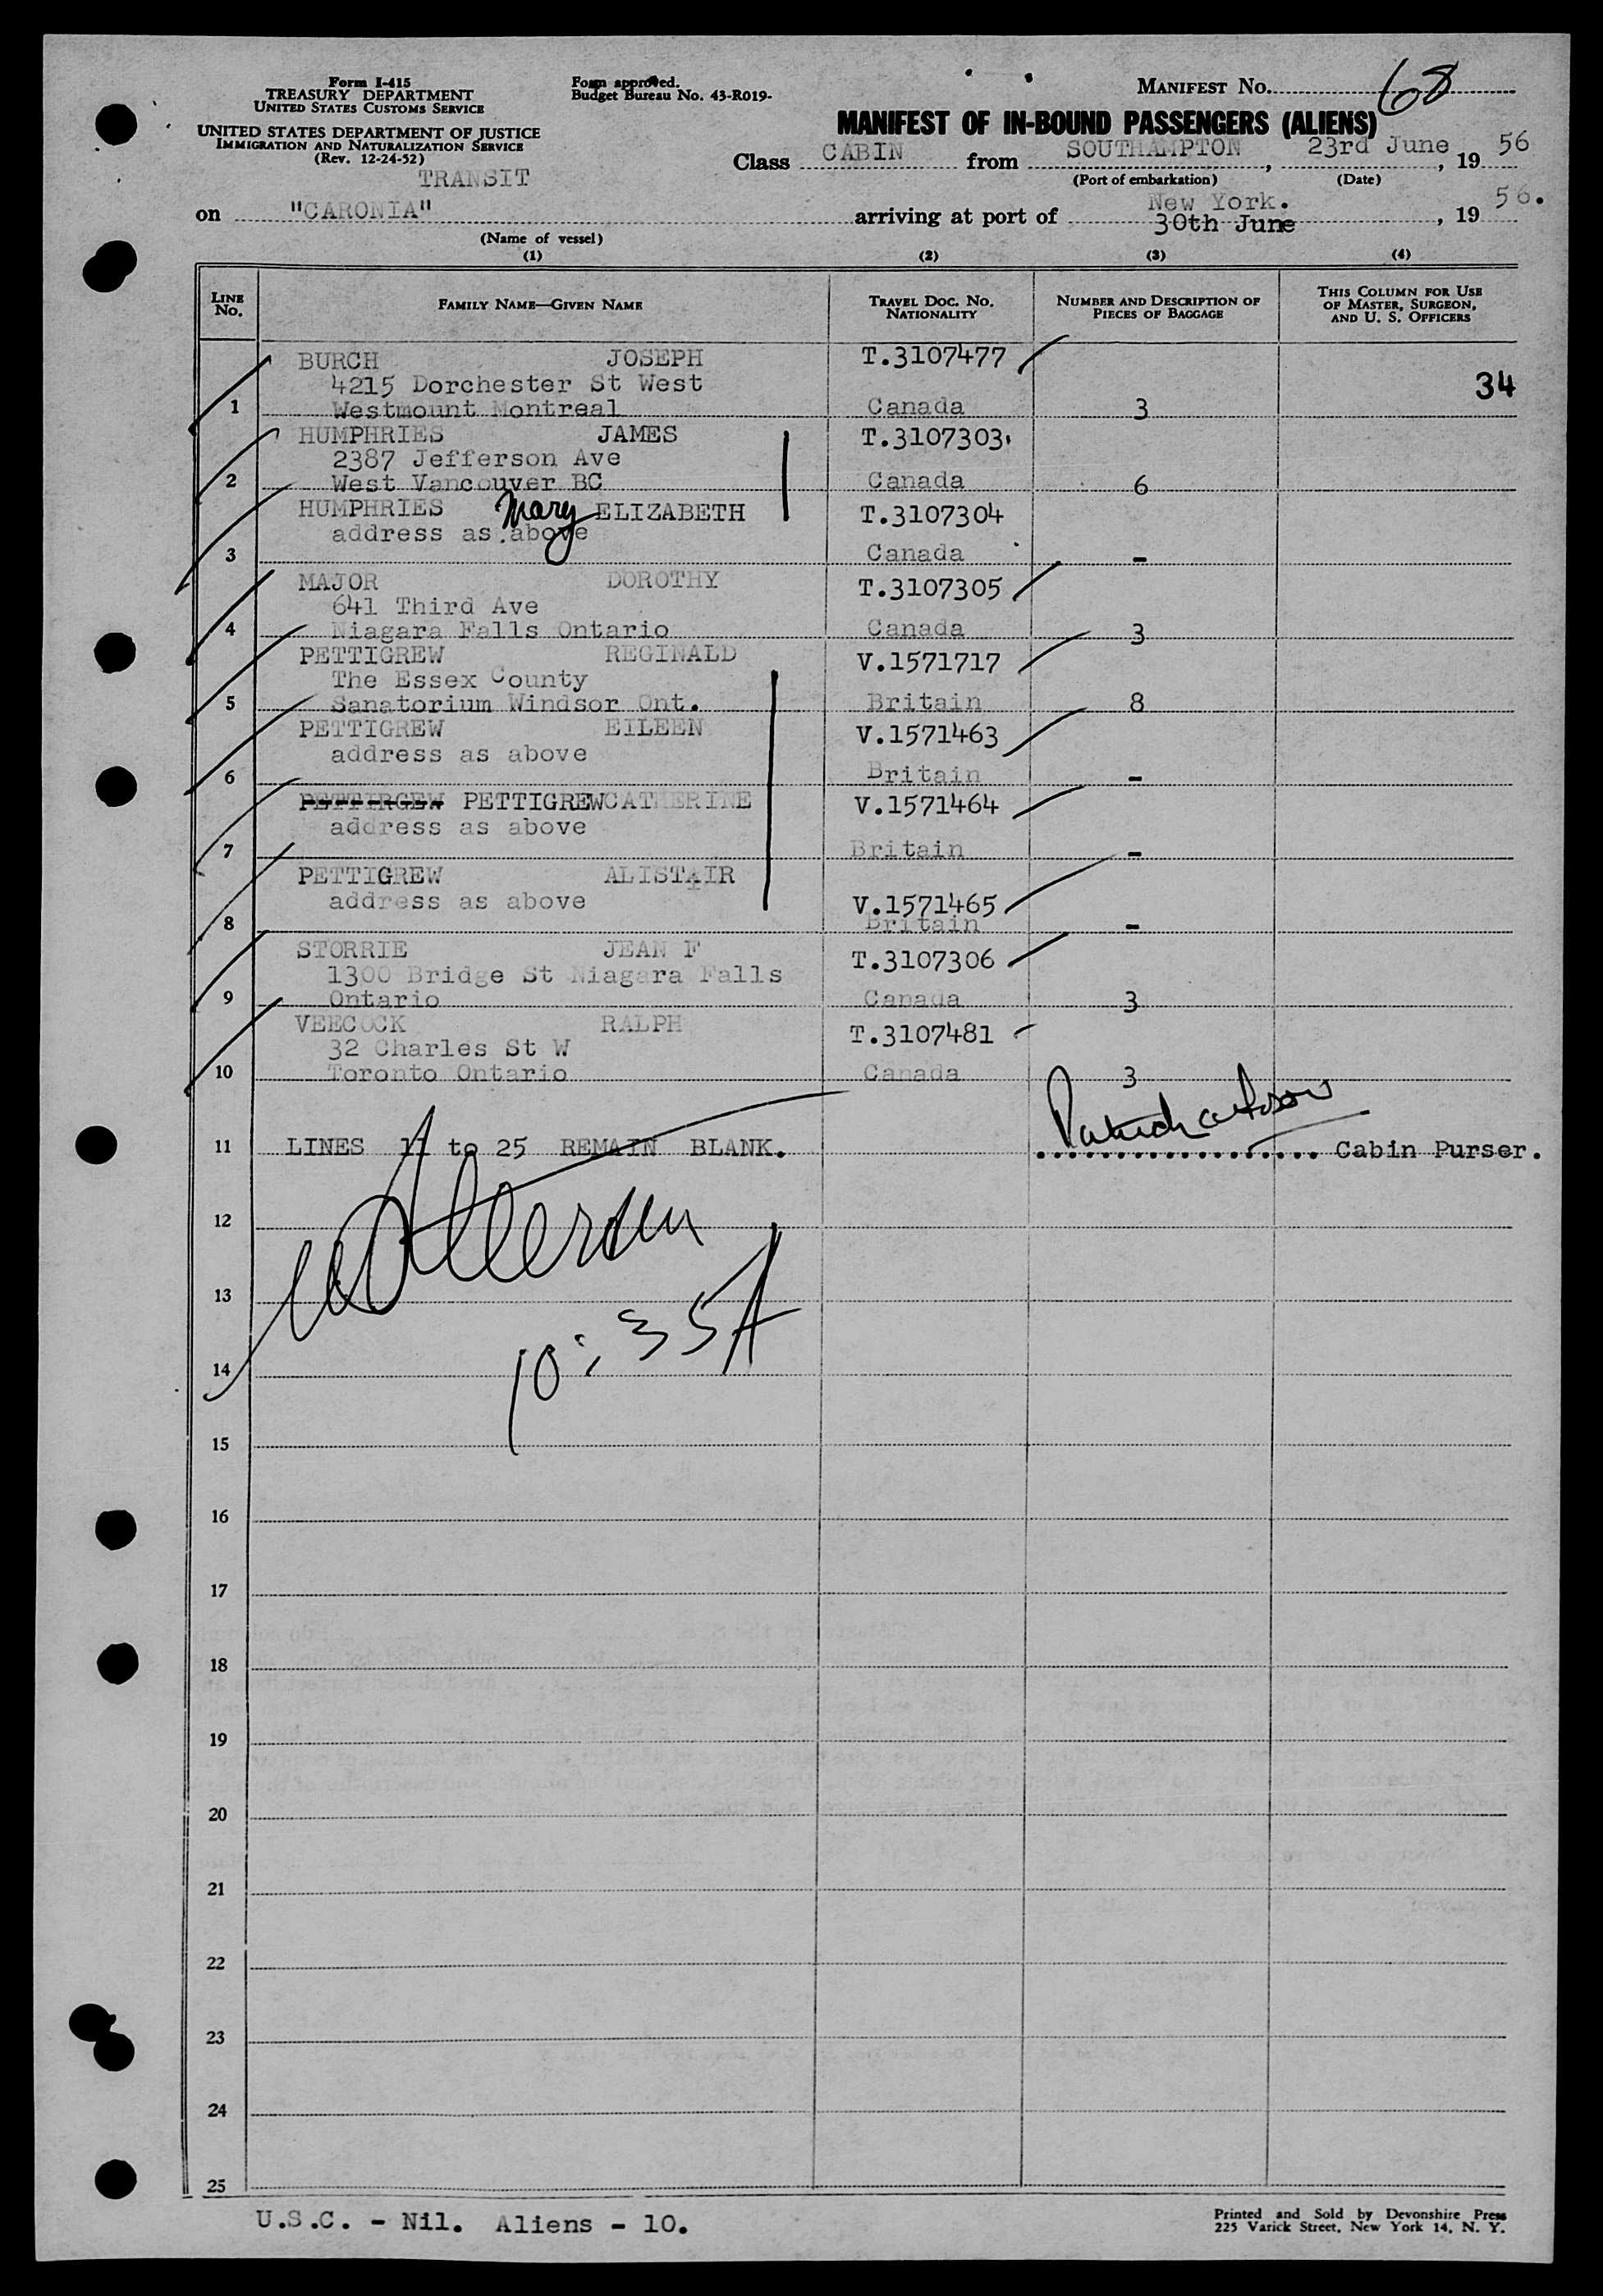 Form I-415
TREASURY DEPARTMENT
UNITED STATES CUSTOMS SERVICE
UNITED STATES DEPARTMENT OF JUSTICE
IMMIGRATION AND NATURALIZATION SERVICE
(Rev. 12-24-52)
TRANSIT
Form approved.
Budget Bureau No. 43-R019-
MANIFEST NO. 68
MANIFEST OF IN-BOUND PASSENGERS (ALIENS)
Class CABIN from SOUTHAMPTON, 23rd June, 19 56
(Port of embarkation) (Date)
on "CARONIA" arriving at port of New York. 30th June, 19 56.
(Name of vessel)
(1) (2) (3) (4)
LINE NO. FAMILY NAME—GIVEN NAME TRAVEL DOC. NO. NATIONALITY NUMBER AND DESCRIPTION OF PIECES OF BAGGAGE THIS COLUMN FOR USE OF MASTER, SURGEON, AND U. S. OFFICERS
BURCH JOSEPH T.3107477
4215 Dorchester St West 34
1 Westmount Montreal Canada 3
HUMPHRIES JAMES T.3107303
2387 Jefferson Ave
2 West Vancouver BC Canada 6
HUMPHRIES Mary ELIZABETH T.3107304
address as above
3 Canada -
MAJOR DOROTHY T.3107305
641 Third Ave
4 Niagara Falls Ontario Canada 3
PETTIGREW REGINALD V.1571717
The Essex County
5 Sanatorium Windsor Ont. Britain 8
PETTIGREW EILEEN V.1571463
address as above
6 Britain -
PETTIRGEW PETTIGREW CATHERINE V.1571464
address as above
7 Britain -
PETTIGREW ALISTAIR
address as above V.1571465
8 Britain -
STORRIE JEAN F T.3107306
1300 Bridge St Niagara Falls
9 Ontario Canada 3
VEECOCK RALPH T.3107481
32 Charles St W
10 Toronto Ontario Canada 3
11 LINES 11 to 25 REMAIN BLANK. Cabin Purser.
12
13
10:35A
14
15
16
17
18
19
20
21
22
23
24
25
U.S.C. - Nil. Aliens - 10.
Printed and Sold by Devonshire Press
225 Varick Street, New York 14, N. Y.